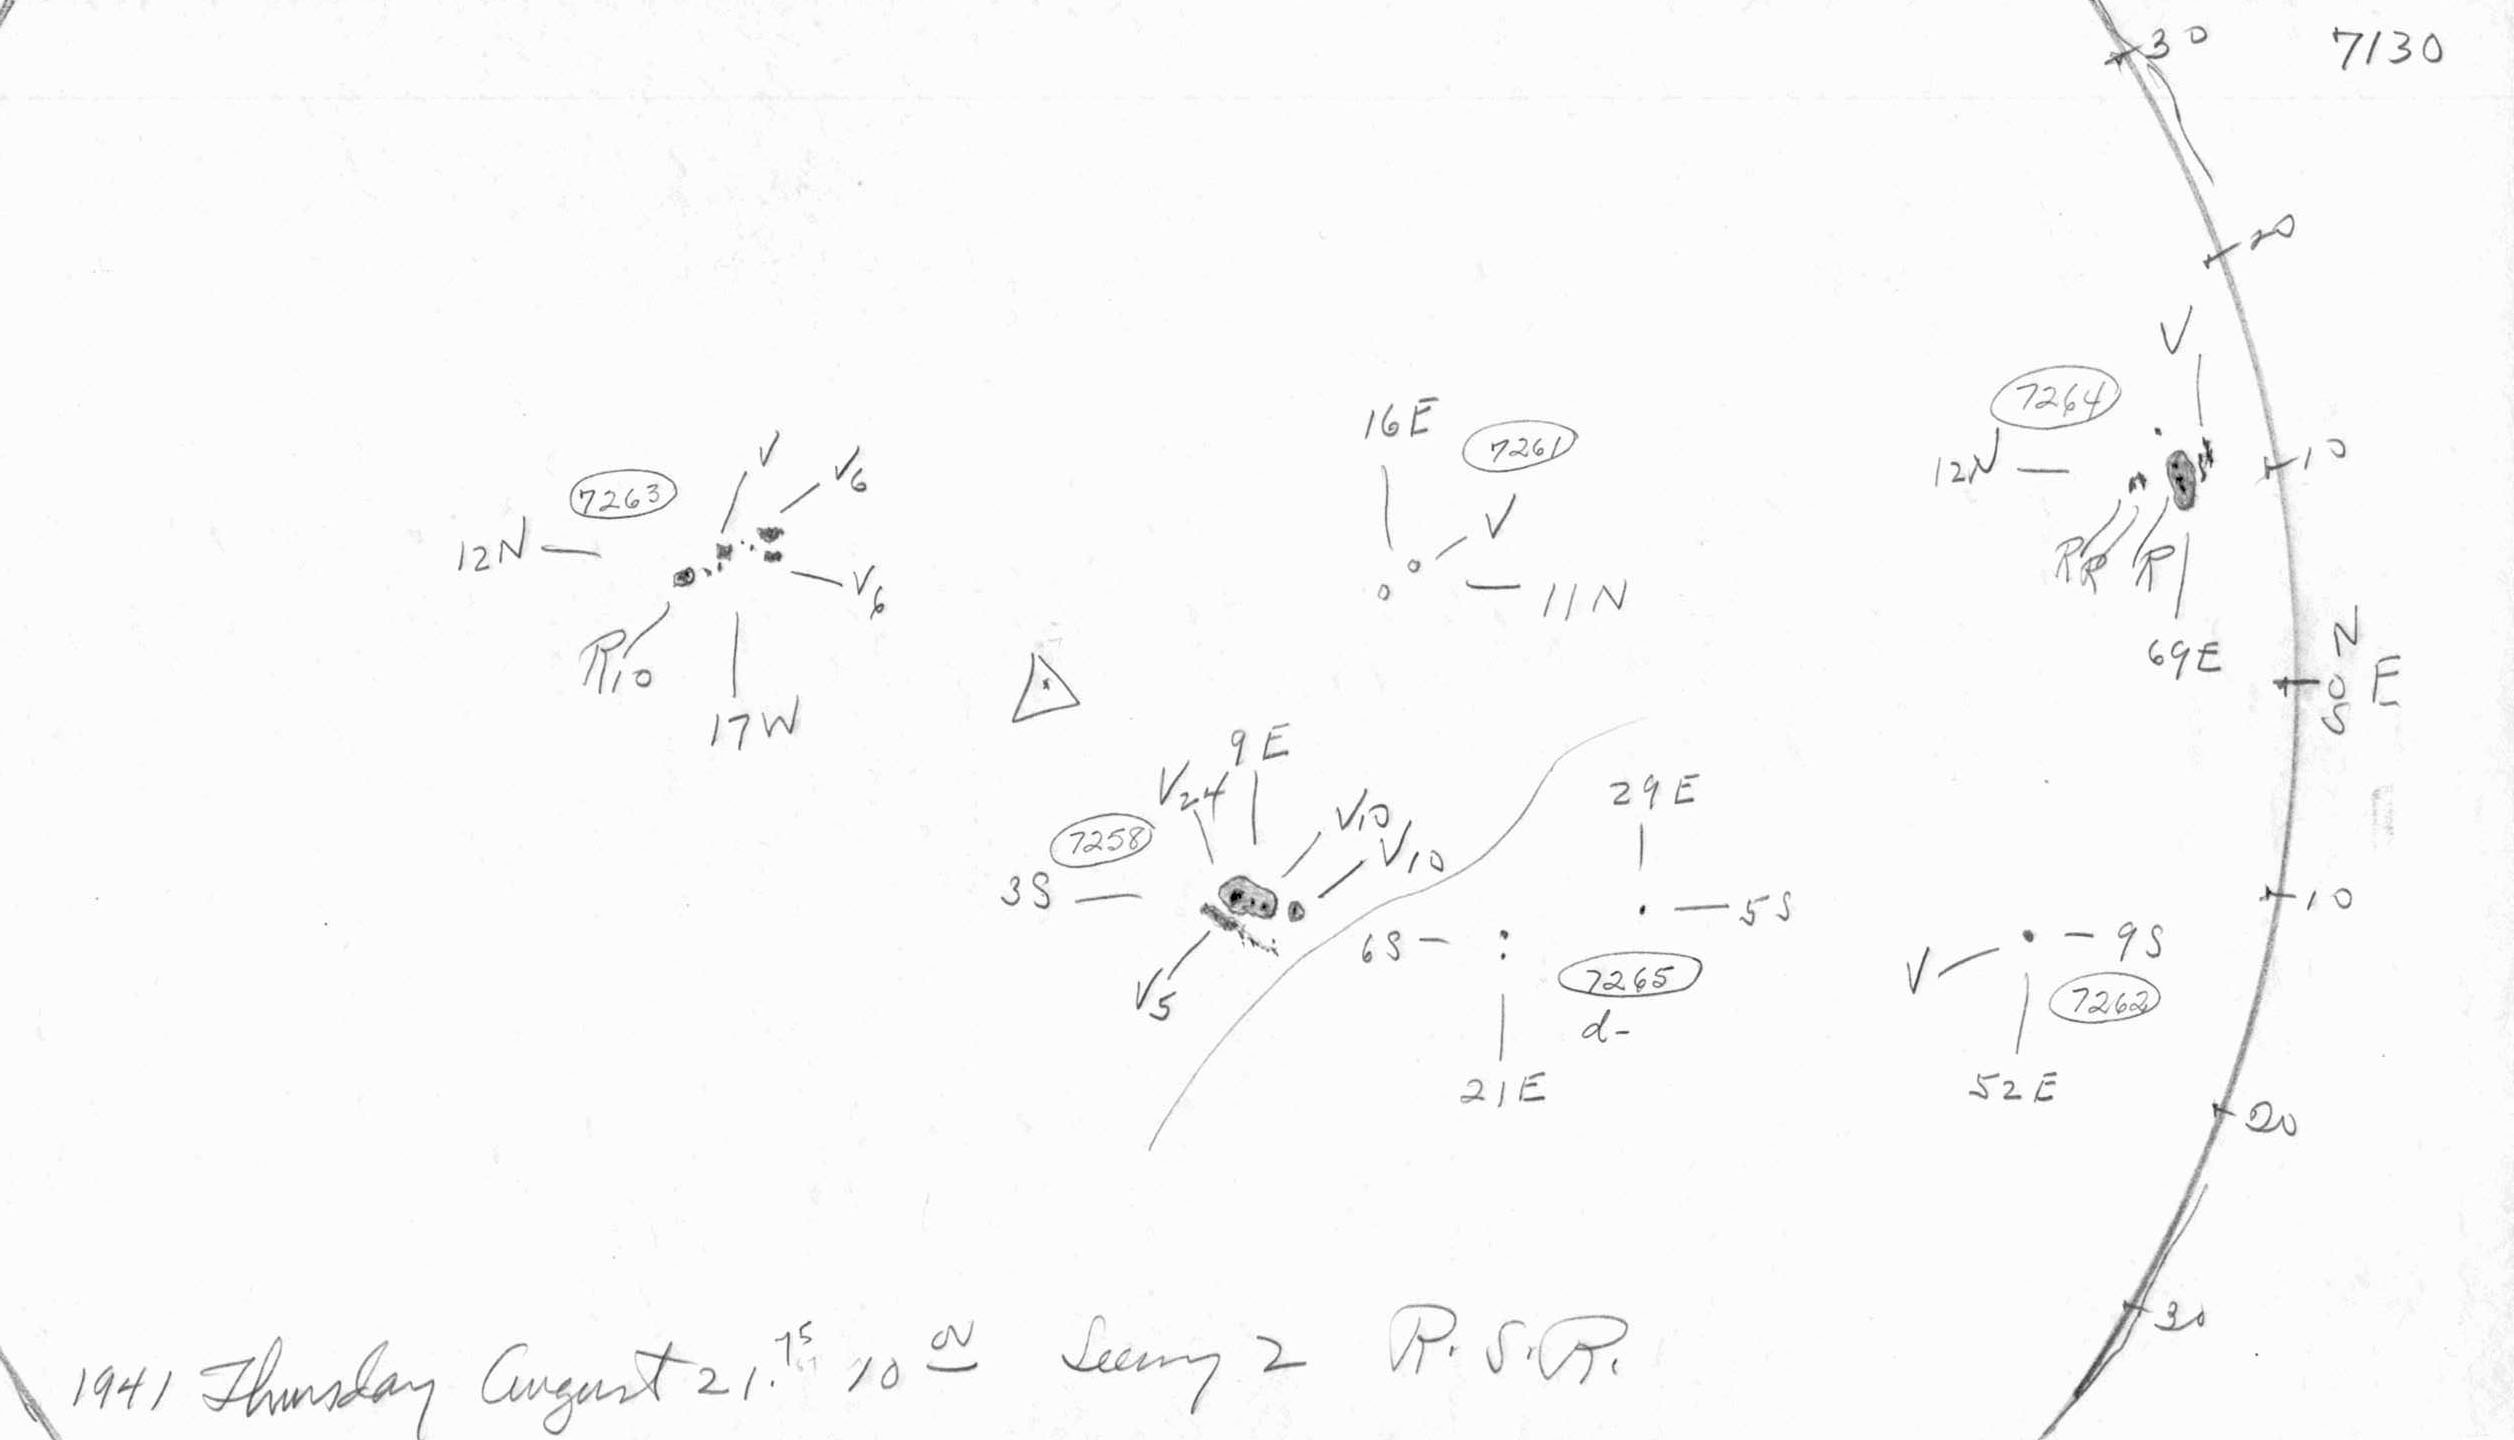 30 7130
20
V
7264
12N
10
R R R
69E
N
0 E
S
16E
7261
V
11N
V
V6
7263
12N
V6
R10
17W
9E
V24
V10
V10
7258
3S
V5
29E
5S
6S
7265
d-
21E
10
9S
V
7262
52E
20
30
1941 Thursday August 21. 10 Seeing 2 R.S.R.